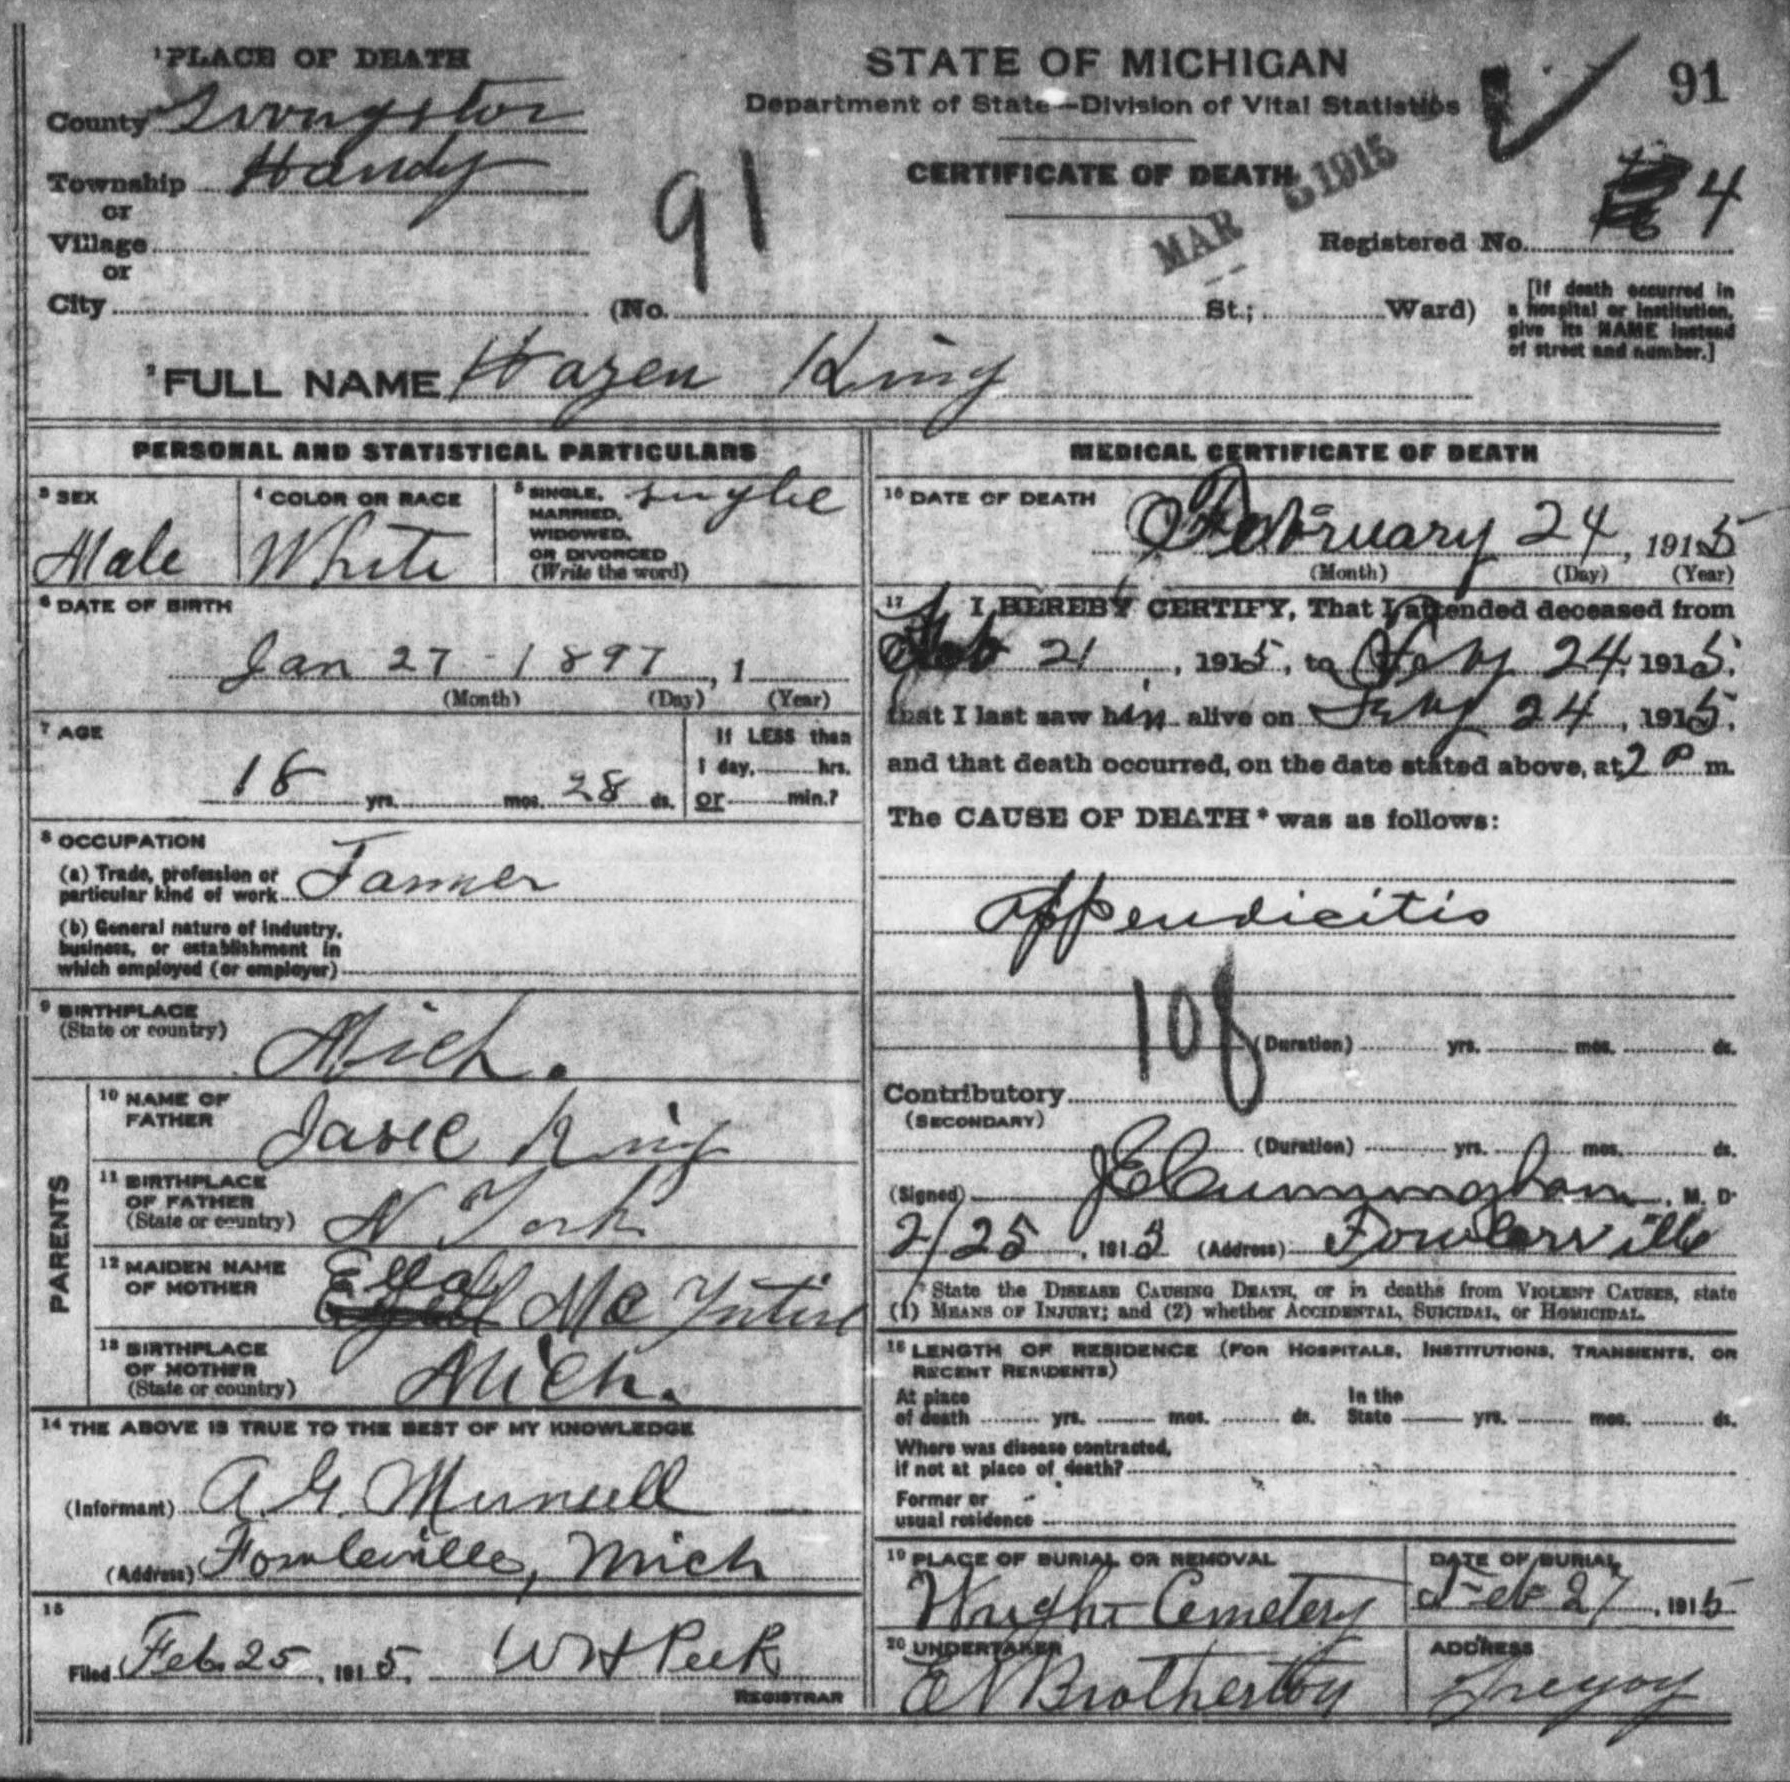 ¹PLACE OF DEATH
County Livingston
Township Handy
or
Village
or
City
STATE OF MICHIGAN
Department of State—Division of Vital Statistics
CERTIFICATE OF DEATH
MAR 5 1915
91
91
Registered No. 4
(No. St.; Ward)
[If death occurred in
a hospital or institution,
give its NAME instead
of street and number.]
²FULL NAME Hazen King
PERSONAL AND STATISTICAL PARTICULARS
³ SEX
Male
⁴ COLOR OR RACE
White
⁵ SINGLE, single
MARRIED,
WIDOWED,
OR DIVORCED
(Write the word)
⁶ DATE OF BIRTH
Jan 27 - 1897, 1
(Month) (Day) (Year)
⁷ AGE
18 yrs. mos. 28 ds.
If LESS than
1 day, hrs.
or min.?
⁸ OCCUPATION
(a) Trade, profession or
particular kind of work Farmer
(b) General nature of industry,
business, or establishment in
which employed (or employer)
⁹ BIRTHPLACE
(State or country)
Mich.
PARENTS
¹⁰ NAME OF
FATHER
King
¹¹ BIRTHPLACE
OF FATHER
(State or country) N York
¹² MAIDEN NAME
OF MOTHER
Ella Mc Intire
¹³ BIRTHPLACE
OF MOTHER
(State or country) Mich.
¹⁴ THE ABOVE IS TRUE TO THE BEST OF MY KNOWLEDGE
(Informant) A. G. Munsell
(Address) Fowlerville, Mich
¹⁵
Filed Feb. 25, 1915, W H Peek
REGISTRAR
MEDICAL CERTIFICATE OF DEATH
¹⁶ DATE OF DEATH
February 24, 1915
(Month) (Day) (Year)
¹⁷ I HEREBY CERTIFY, That I attended deceased from
Feb 21, 1915, to Feby 24, 1915,
that I last saw him alive on Feby 24, 1915,
and that death occurred, on the date stated above, at 2 P m.
The CAUSE OF DEATH* was as follows:
Appendicitis
108
(Duration) yrs. mos. ds.
Contributory
(SECONDARY)
(Duration) yrs. mos. ds.
(Signed) J E Cunningham, M. D.
2/25, 1915 (Address) Fowlerville
*State the DISEASE CAUSING DEATH, or in deaths from VIOLENT CAUSES, state
(1) MEANS OF INJURY; and (2) whether ACCIDENTAL, SUICIDAL, or HOMICIDAL.
¹⁸ LENGTH OF RESIDENCE (FOR HOSPITALS, INSTITUTIONS, TRANSIENTS, OR
RECENT RESIDENTS)
At place
of death yrs. mos. ds.
In the
State yrs. mos. ds.
Where was disease contracted,
if not at place of death?
Former or
usual residence
¹⁹ PLACE OF BURIAL OR REMOVAL
Wright Cemetery
DATE OF BURIAL
Feb 27, 1915
²⁰ UNDERTAKER
E N Brotherton
ADDRESS